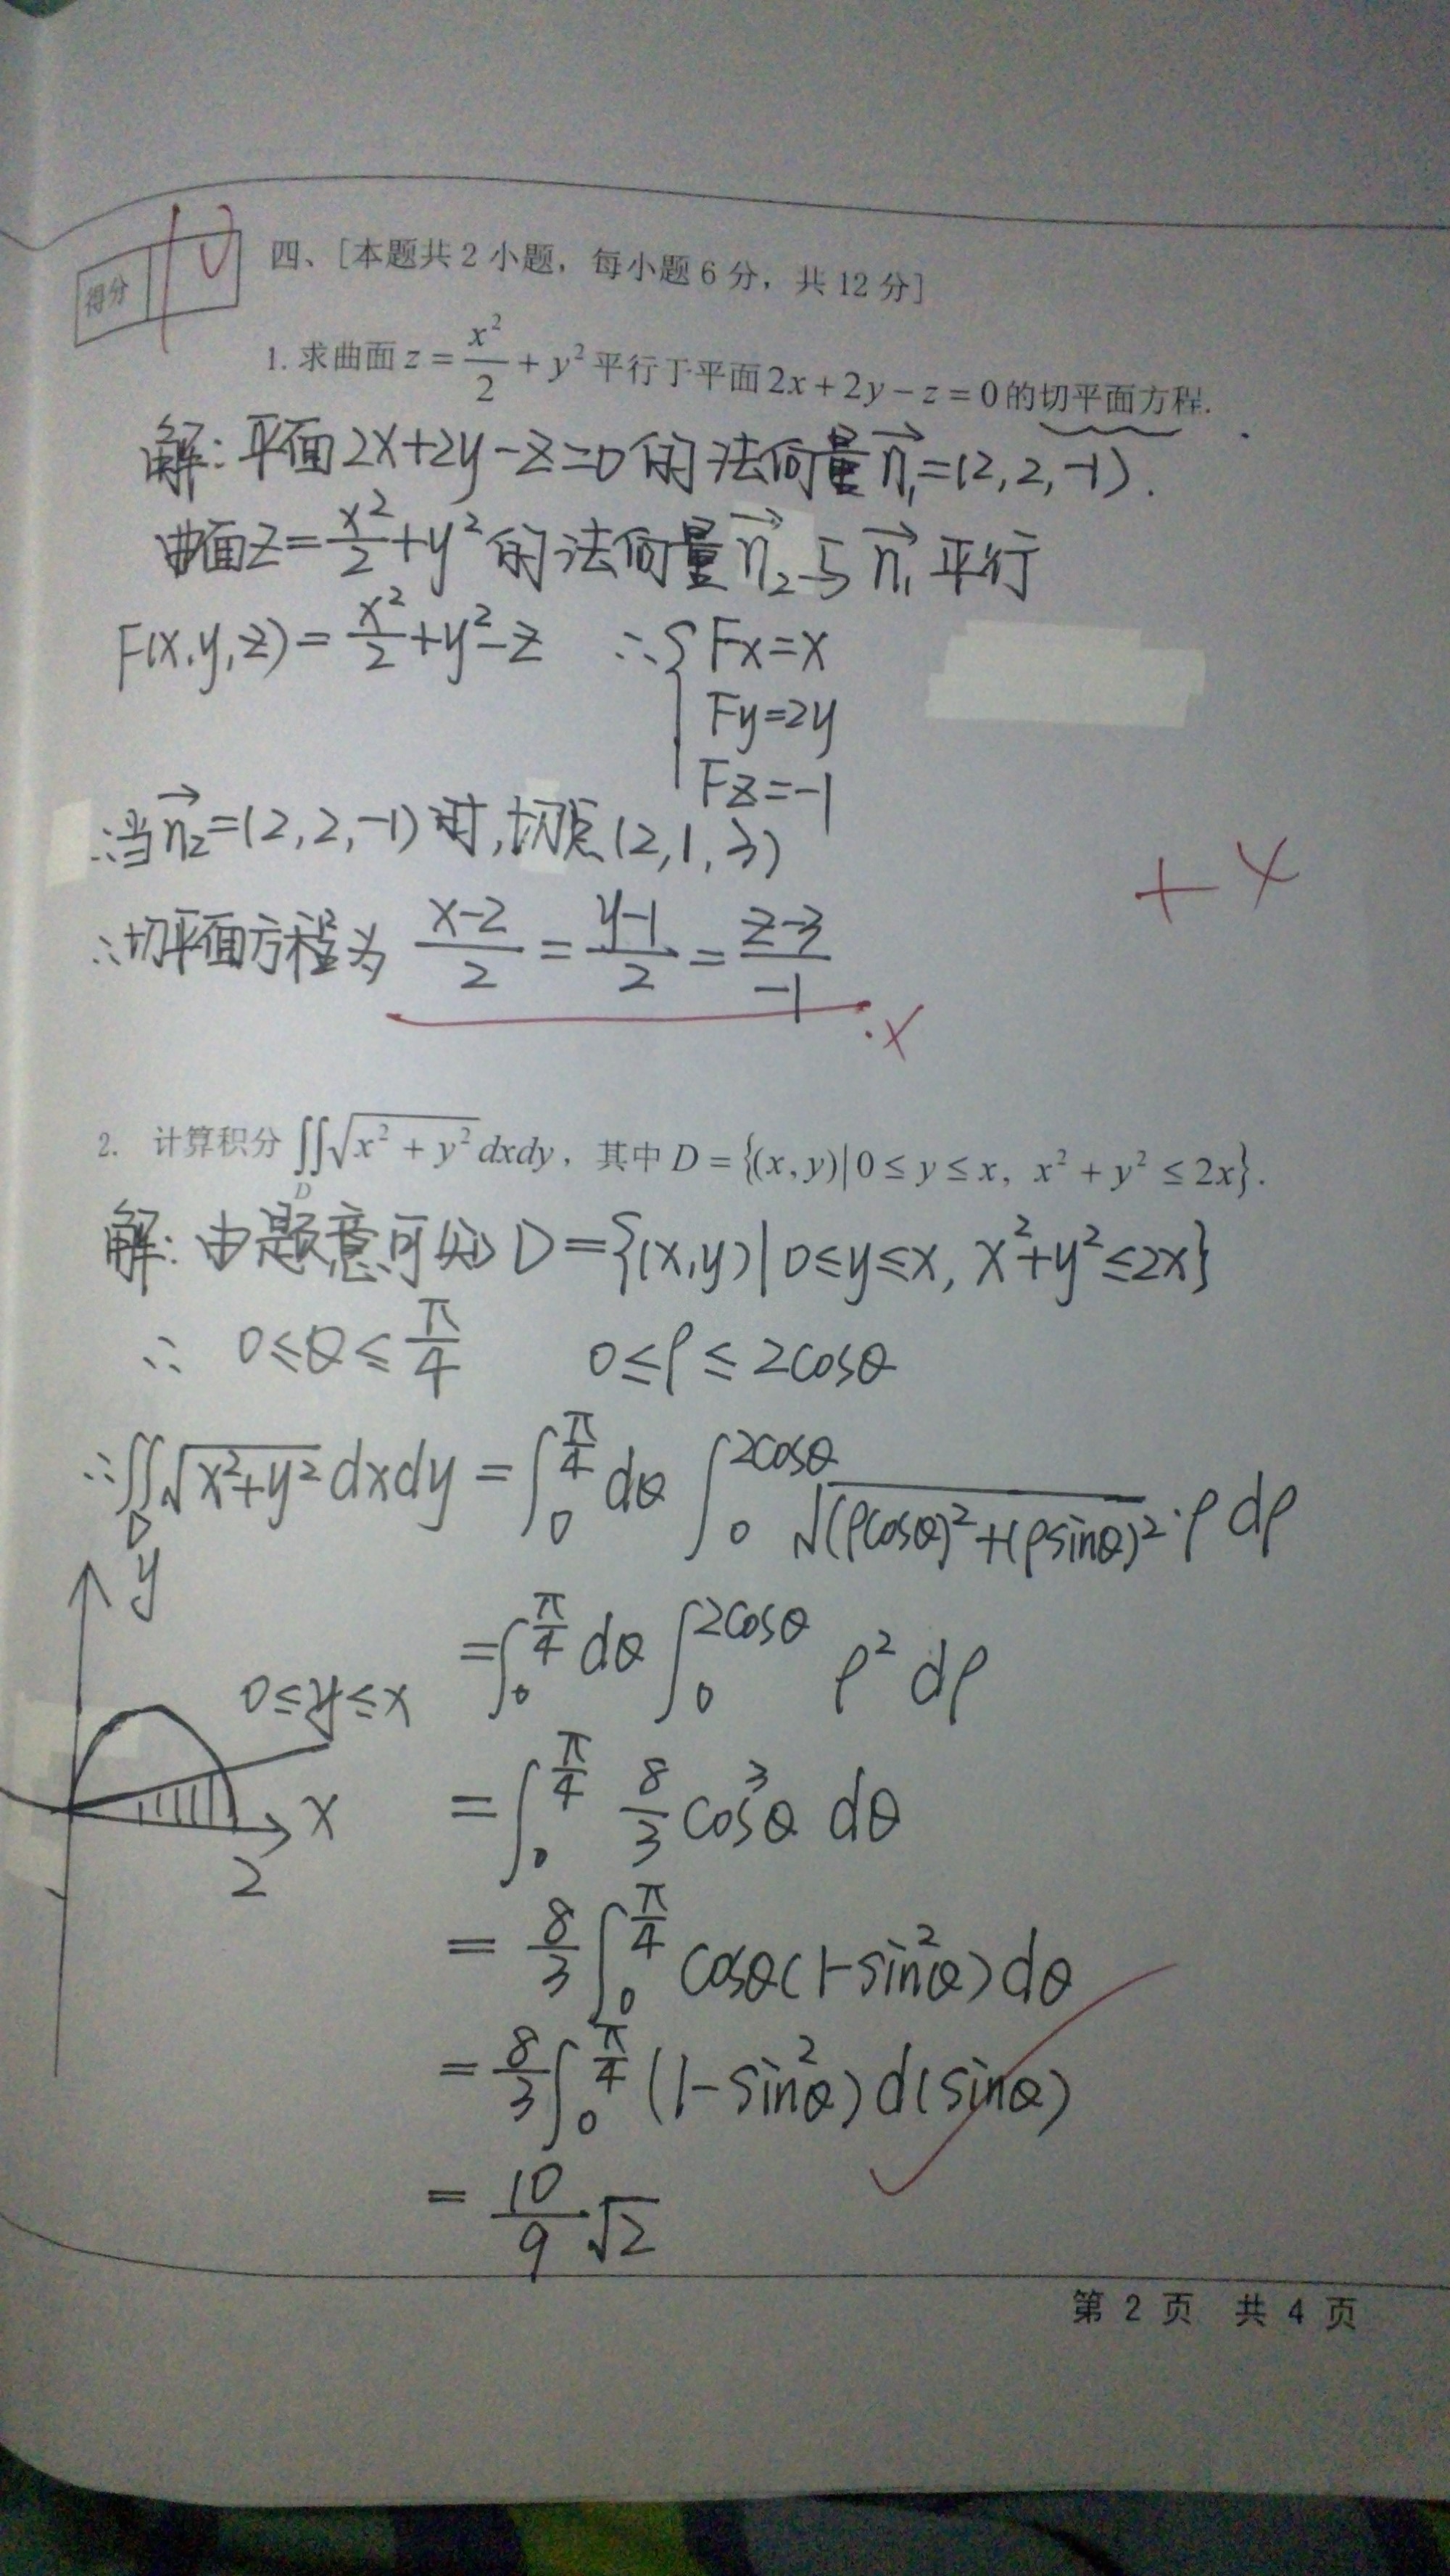 得分
10
四、[本题共2小题，每小题6分，共12分]
1. 求曲面 z = x²/2 + y² 平行于平面 2x + 2y − z = 0 的切平面方程.
解: 平面2x+2y−z=0的法向量 n₁⃗=(2,2,−1).
曲面z=x²/2+y²的法向量 n₂⃗ 与 n₁⃗ 平行
F(x,y,z)=x²/2+y²−z ∴{Fx=x
Fy=2y
Fz=−1
∴当 n₂⃗=(2,2,−1)时,切点(2,1,3)
+4
∴切平面方程为 (x−2)/2 = (y−1)/2 = (z−3)/−1
×
2. 计算积分 ∬_D √(x² + y²) dxdy，其中 D = {(x,y)|0 ≤ y ≤ x, x² + y² ≤ 2x}.
解: 由题意可知 D={(x,y)|0≤y≤x, x²+y²≤2x}
∴ 0≤θ≤π/4 0≤ρ≤2cosθ
∴∬_D √(x²+y²) dxdy = ∫₀^(π/4) dθ ∫₀^(2cosθ) √((ρcosθ)²+(ρsinθ)²)·ρ dρ
= ∫₀^(π/4) dθ ∫₀^(2cosθ) ρ² dρ
= ∫₀^(π/4) 8/3 cos³θ dθ
= 8/3 ∫₀^(π/4) cosθ(1−sin²θ)dθ
= 8/3 ∫₀^(π/4) (1−sin²θ)d(sinθ)
= 10/9 √2
y
0≤y≤x
x
2
第 2 页 共 4 页